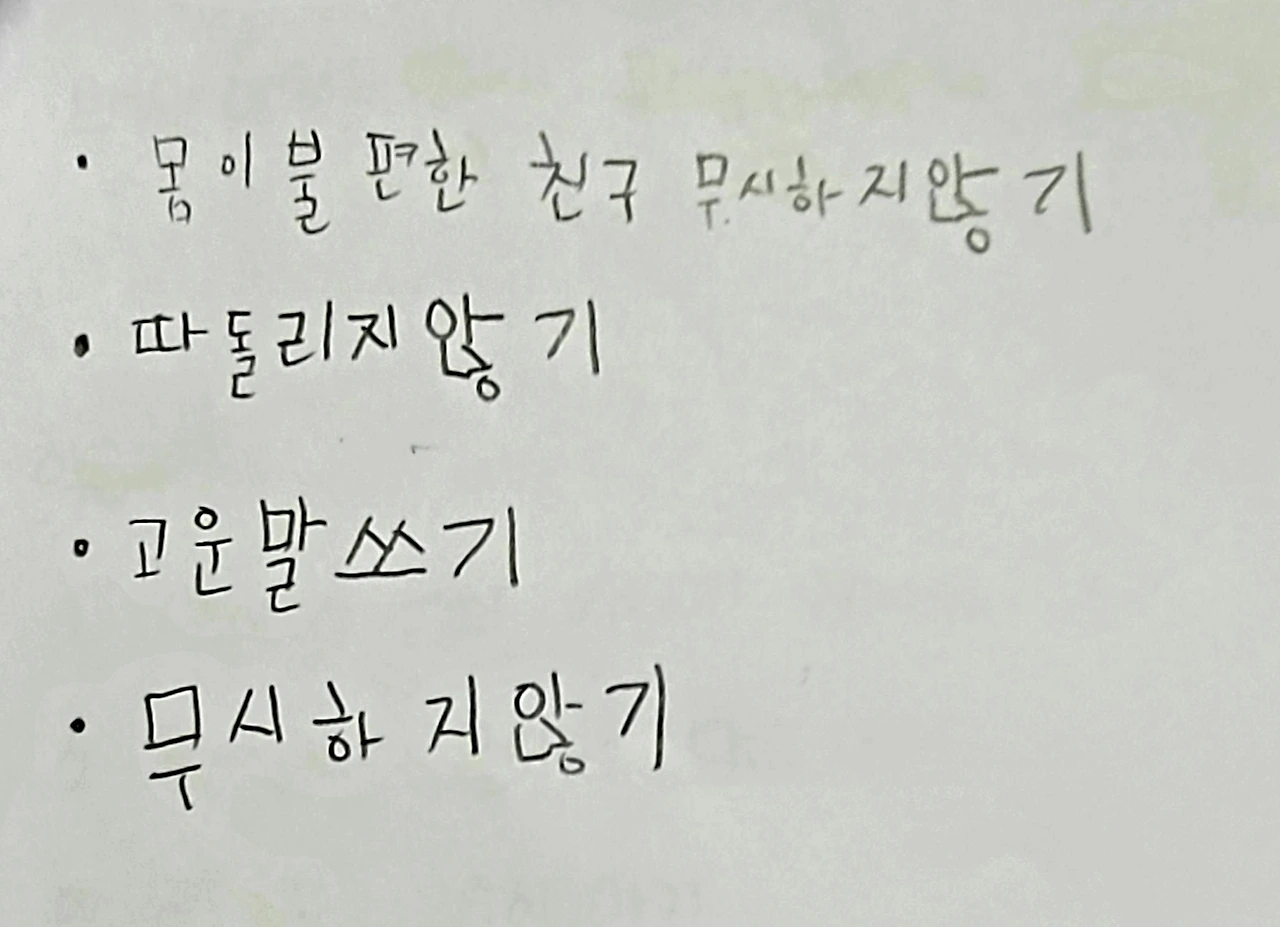 · 몸이불편한 친구 무시하지않기
· 따돌리지않기
· 고운말쓰기
· 무시하지않기